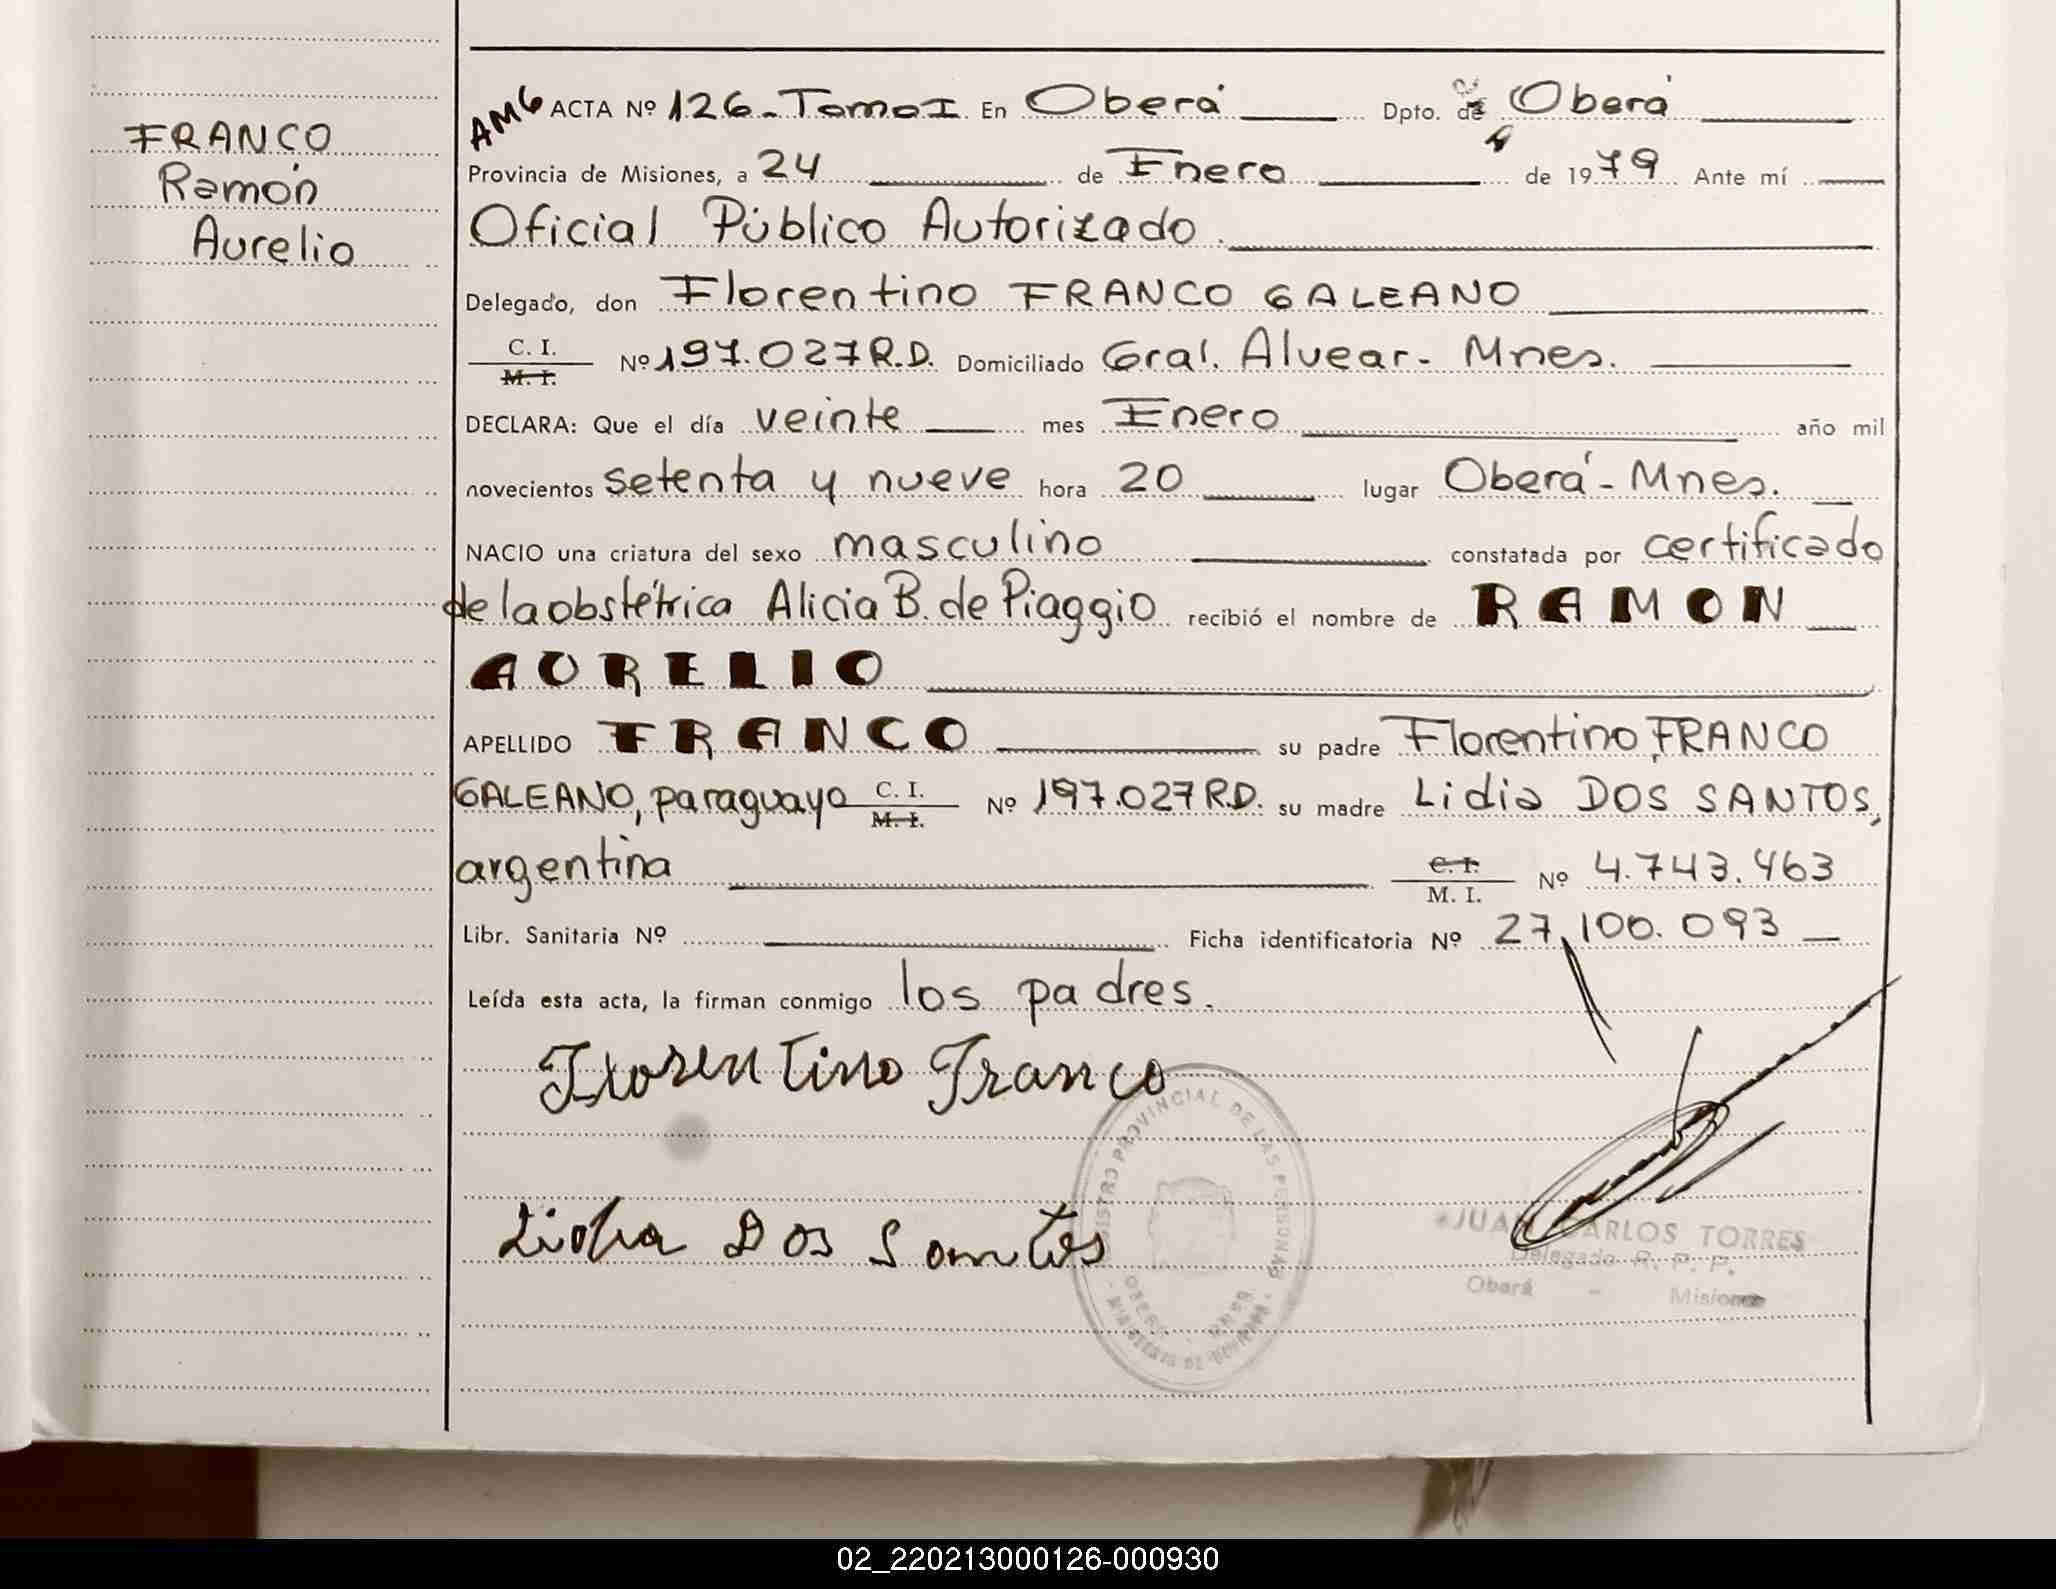 FRANCO
Ramón
Aurelio
AMG ACTA Nº 126-Tomo I En Oberá Dpto. de Oberá
Provincia de Misiones, a 24 de Enero de 1979 Ante mí
Oficial Público Autorizado.
Delegado, don Florentino FRANCO GALEANO
C. I. M. I. Nº 197.027 R.D. Domiciliado Gral. Alvear - Mnes.
DECLARA: Que el día veinte mes Enero año mil
novecientos setenta y nueve hora 20 lugar Oberá - Mnes.
NACIO una criatura del sexo masculino constatada por certificado
de la obstétrica Alicia B. de Piaggio recibió el nombre de RAMON
AURELIO
APELLIDO FRANCO su padre Florentino FRANCO
GALEANO, paraguayo C. I. M. I. Nº 197.027 R.D. su madre Lidia DOS SANTOS,
argentina C. I. M. I. Nº 4.743.463
Libr. Sanitaria Nº Ficha identificatoria Nº 27.100.093
Leída esta acta, la firman conmigo los padres.
Florentino Franco
Lidia Dos Santos
REGISTRO PROVINCIAL DE LAS PERSONAS
OBERA
JUAN CARLOS TORRES
Delegado R. P. P.
Oberá - Misiones
02_220213000126-000930